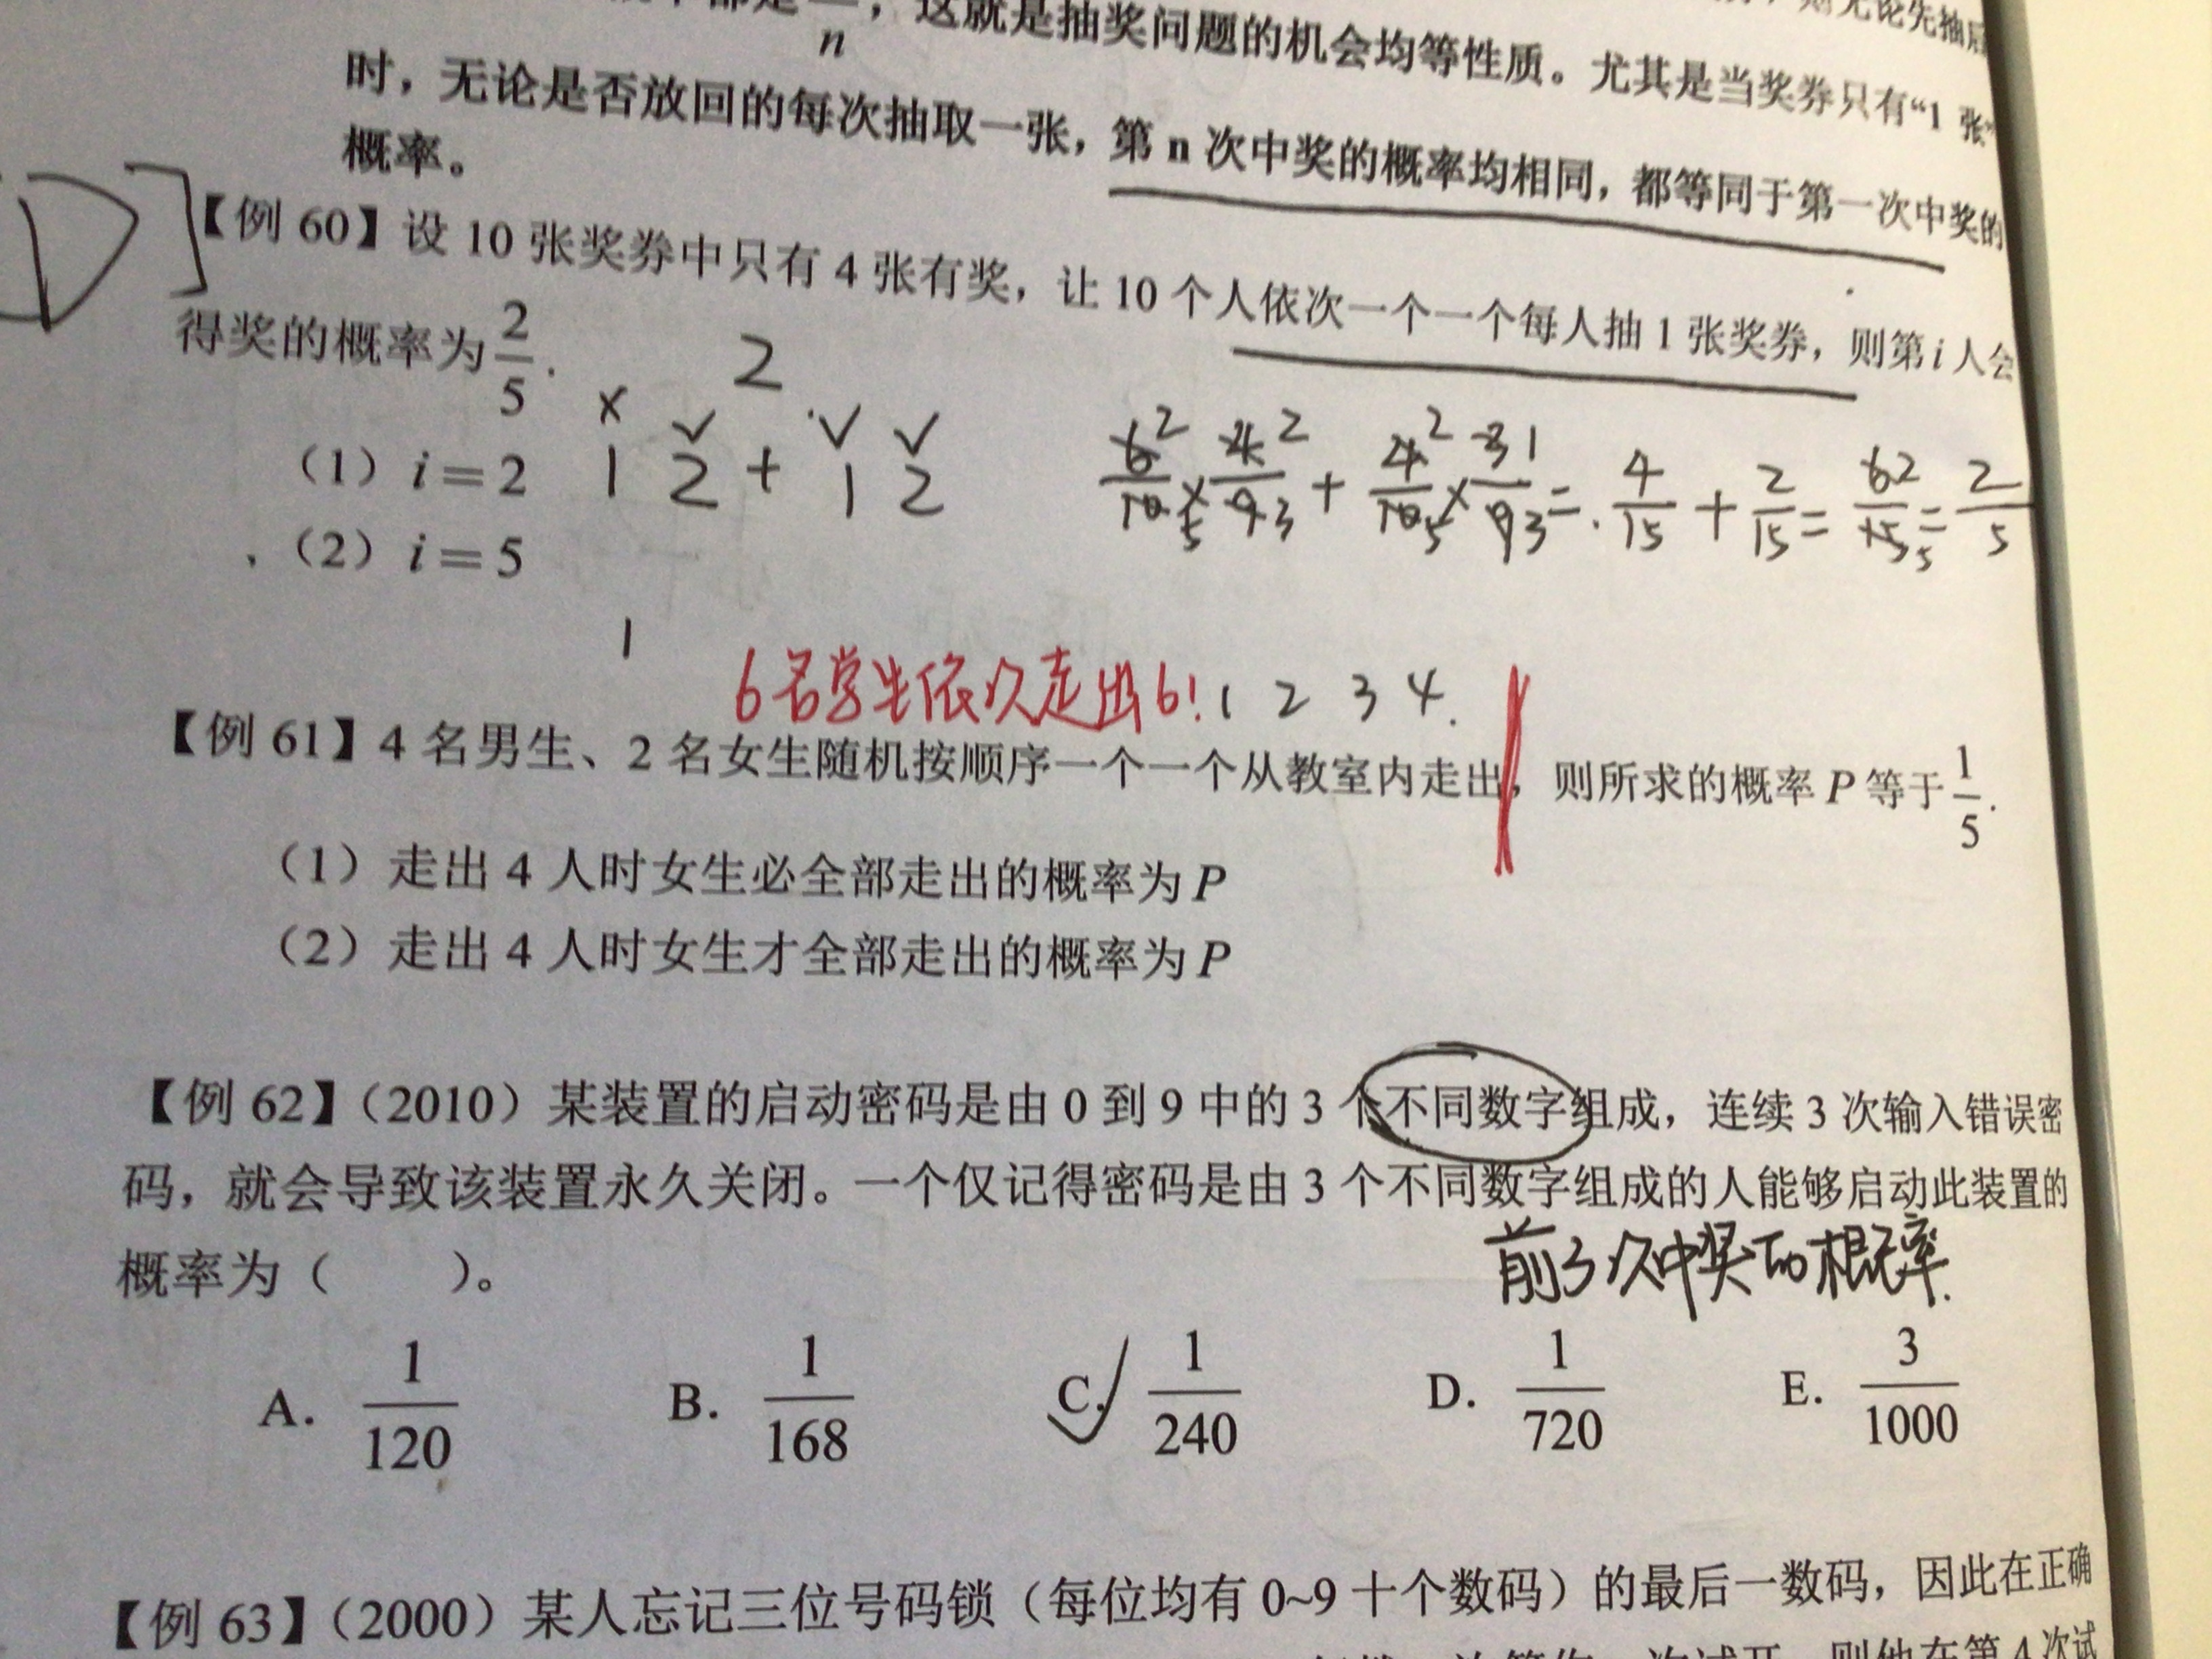 n，这就是抽奖问题的机会均等性质。尤其是当奖券只有“1 张”
时，无论是否放回的每次抽取一张，第 n 次中奖的概率均相同，都等同于第一次中奖的
概率。
【例 60】设 10 张奖券中只有 4 张有奖，让 10 个人依次一个一个每人抽 1 张奖券，则第 i 人会
得奖的概率为 2/5.
2
× ✓ ✓ ✓
（1）i＝2 1 2 + 1 2 6/10 × 4/9 + 4/10 × 3/9 = 4/15 + 2/15 = 6/15 = 2/5
（2）i＝5
1
6名学生依次走出6! 1 2 3 4.
【例 61】4 名男生、2 名女生随机按顺序一个一个从教室内走出，则所求的概率 P 等于 1/5.
（1）走出 4 人时女生必全部走出的概率为 P
（2）走出 4 人时女生才全部走出的概率为 P
【例 62】（2010）某装置的启动密码是由 0 到 9 中的 3 个不同数字组成，连续 3 次输入错误密
码，就会导致该装置永久关闭。一个仅记得密码是由 3 个不同数字组成的人能够启动此装置的
概率为（ ）。
前3次中奖的概率.
A. 1/120 B. 1/168 C. 1/240 D. 1/720 E. 3/1000
【例 63】（2000）某人忘记三位号码锁（每位均有 0~9 十个数码）的最后一数码，因此在正确